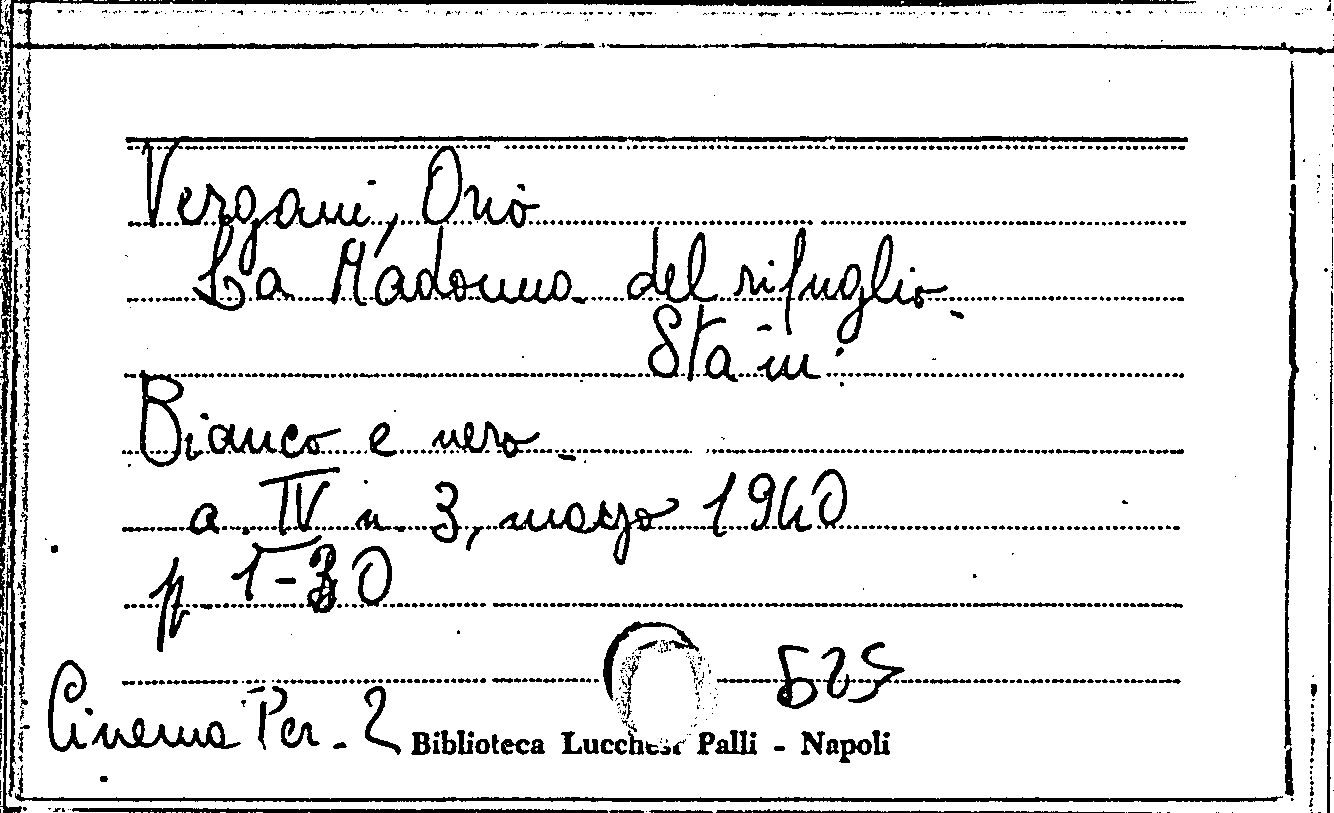 Vergani, Orio
La Madonna del rifuglio.
Sta in:
Bianco e nero.
a. IV n. 3, marzo 1940
p. 1-30
525
Cinema Per. 2 Biblioteca Lucchesi Palli - Napoli